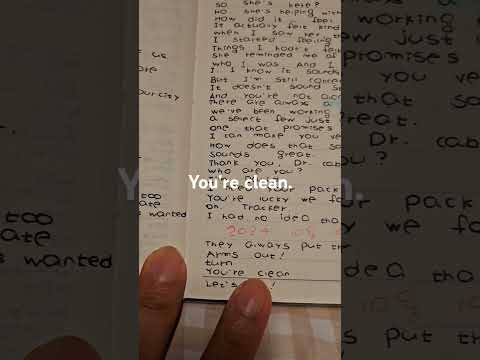 So she's here?
No she's helping with
How did it feel
It actually felt kind
when I saw her, th
I started feeling
Things I hadn't felt
She reminded me of
who I was. And I
I. I know it sounds
But I'm still concer
It doesn't sound s
And you're not alon
There are always a
we've been working
a select few just
one that promises
I can make you ve
How does that so
Sounds great.
Thank you, Dr. cab
who are you?
I need your pack
You're lucky we fo
on. Tracker
I had no idea tha
2024
They always put th
Arms out!
turn
You're clean
Let's
us
ore
our city
too
ate
s wanted
You're clean.
working
few just
promises
you ve
that so
great.
Dr. cab
ou?
pack
y we fo
dea tha
s put th
too
ate
s wanted